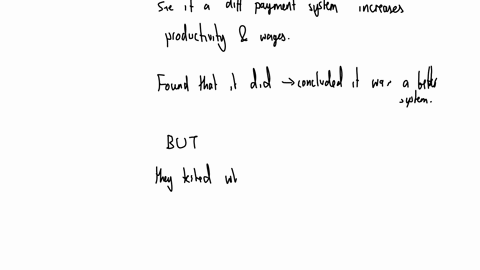 See if a diff payment system increases
productivity & wages.
Found that it did → concluded it was a better
system.
BUT
they tested wh